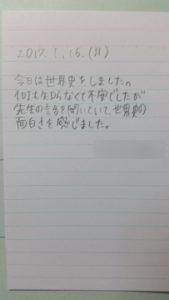 2017. 1. 16. (月)
今日は世界史をしました。
何も知らなくて不安でしたが
先生の話を聞いていて、世界史の
面白さを感じました。